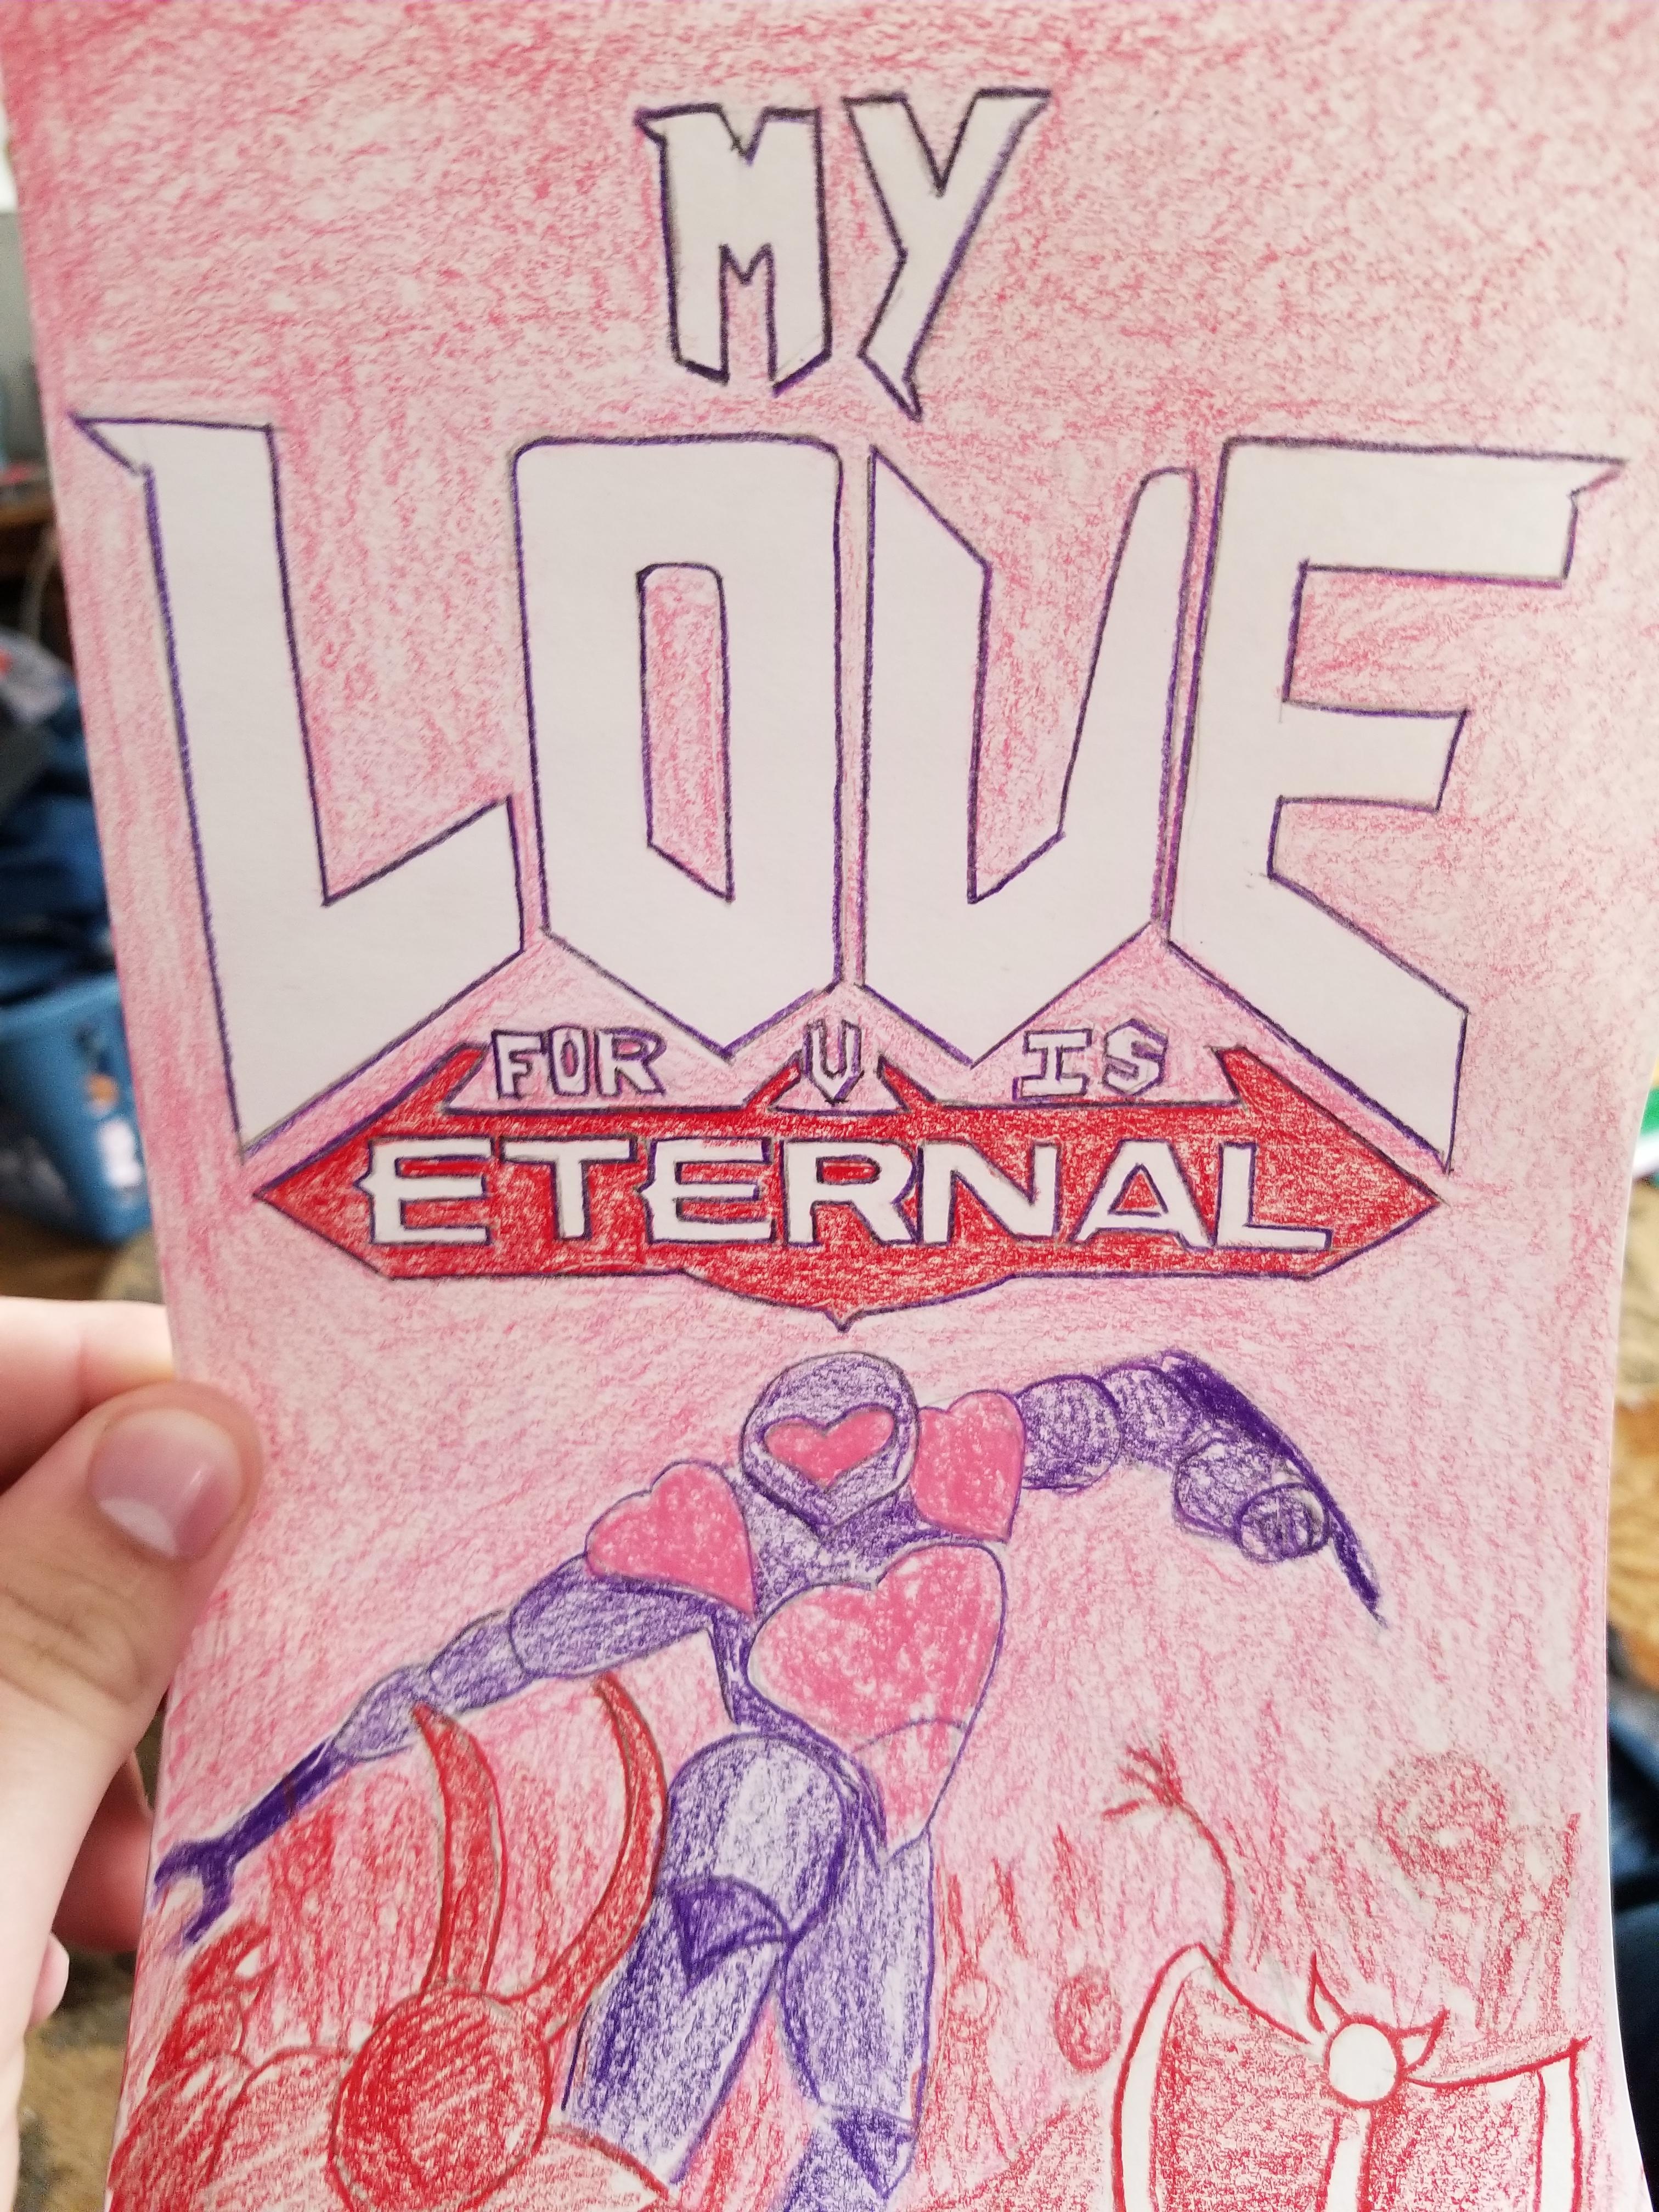 MY
LOVE
FOR U IS
ETERNAL